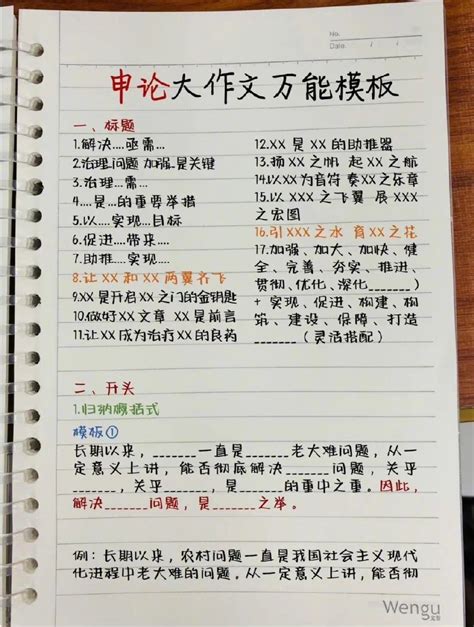 No.
Date. / /
申论大作文万能模板
一、标题
1.解决....亟需...
2.治理.问题 加强.是关键
3.治理...需...
4....是...的重要举措
5.以....实现...目标
6.促进....带来....
7.助推....实现...
8.让 XX 和 XX 两翼齐飞
9.XX 是开启 XX 之门的金钥匙
10.做好 XX 文章 XX 是前言
11.让 XX 成为治疗 XX 的良药
12.XX 是 XX 的助推器
13.扬 XX 之帆 起 XX 之航
14.以XX 为音符 奏XX 之乐章
15.以 XXX 之飞翼 展 XXX
之宏图
16.引 XXX 之水 育 XX 之花
17.加强、加大、加快、健
全、完善、夯实、推进、
贯彻、优化、深化_______)
+ 实现、促进、构建、构
筑、建设、保障、打造
_______(灵活搭配)
二、开头
1.归纳概括式
模板①
长期以来,_______一直是_______老大难问题,从一
定意义上讲,能否彻底解决_______问题,关乎
_______,关乎_______,是_______的重中之重。因此,
解决_______问题,是_______之举。
例:长期以来,农村问题一直是我国社会主义现代
化进程中老大难的问题,从一定意义上讲,能否彻
Wengu